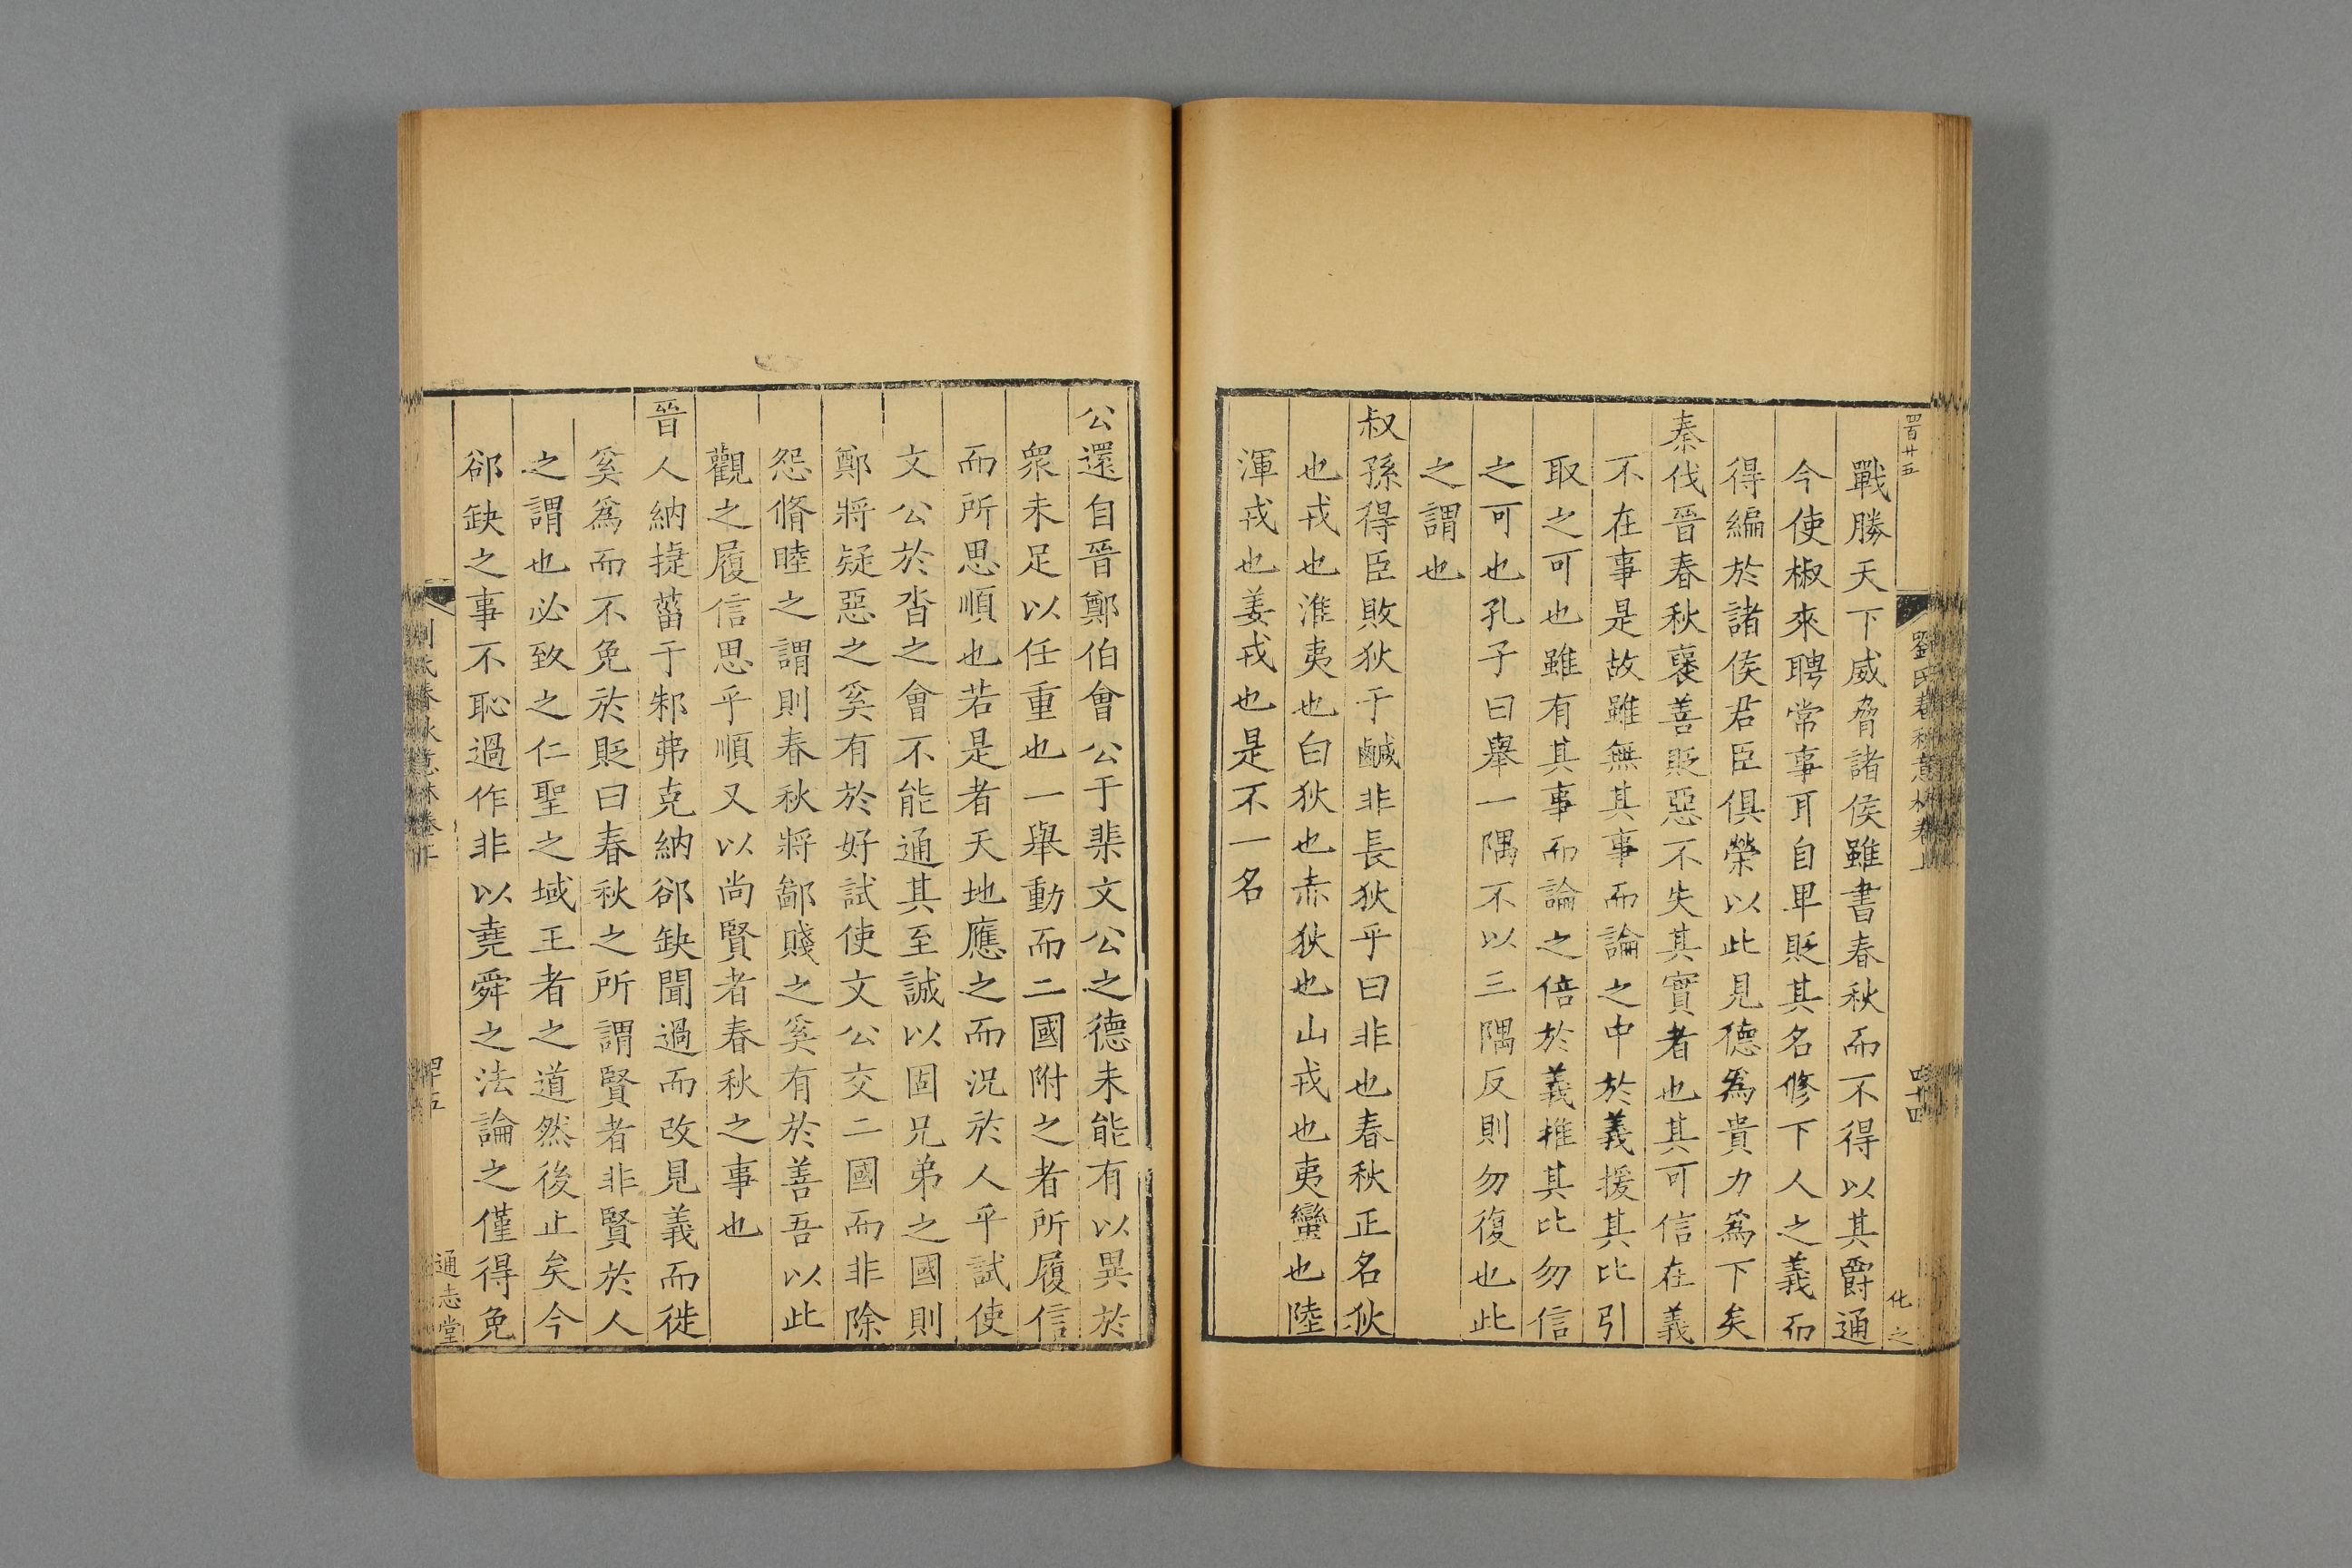 四百廿五
劉氏春秋意林卷上
四十四
化之
戰勝天下威脅諸侯雖書春秋而不得以其爵通
今使椒來聘常事耳自卑貶其名修下人之義而
得編於諸侯君臣俱榮以此見德爲貴力爲下矣
秦伐晉春秋褒善貶惡不失其實者也其可信在義
不在事是故雖無其事而論之中於義援其比引
取之可也雖有其事而論之倍於義推其比勿信
之可也孔子曰舉一隅不以三隅反則勿復也此
之謂也
叔孫得臣敗狄于鹹非長狄乎曰非也春秋正名狄
也戎也淮夷也白狄也赤狄也山戎也夷蠻也陸
渾戎也姜戎也是不一名
公還自晉鄭伯會公于棐文公之德未能有以異於
衆未足以任重也一舉動而二國附之者所履信
而所思順也若是者天地應之而況於人乎試使
文公於沓之會不能通其至誠以固兄弟之國則
鄭將疑惡之奚有於好試使文公交二國而非除
怨脩睦之謂則春秋將鄙賤之奚有於善吾以此
觀之履信思乎順又以尚賢者春秋之事也
晉人納捷菑于邾弗克納郤缺聞過而改見義而徙
奚爲而不免於貶曰春秋之所謂賢者非賢於人
之謂也必致之仁聖之域王者之道然後止矣今
郤缺之事不恥過作非以堯舜之法論之僅得免
劉氏春秋意林卷上
四十五
通志堂